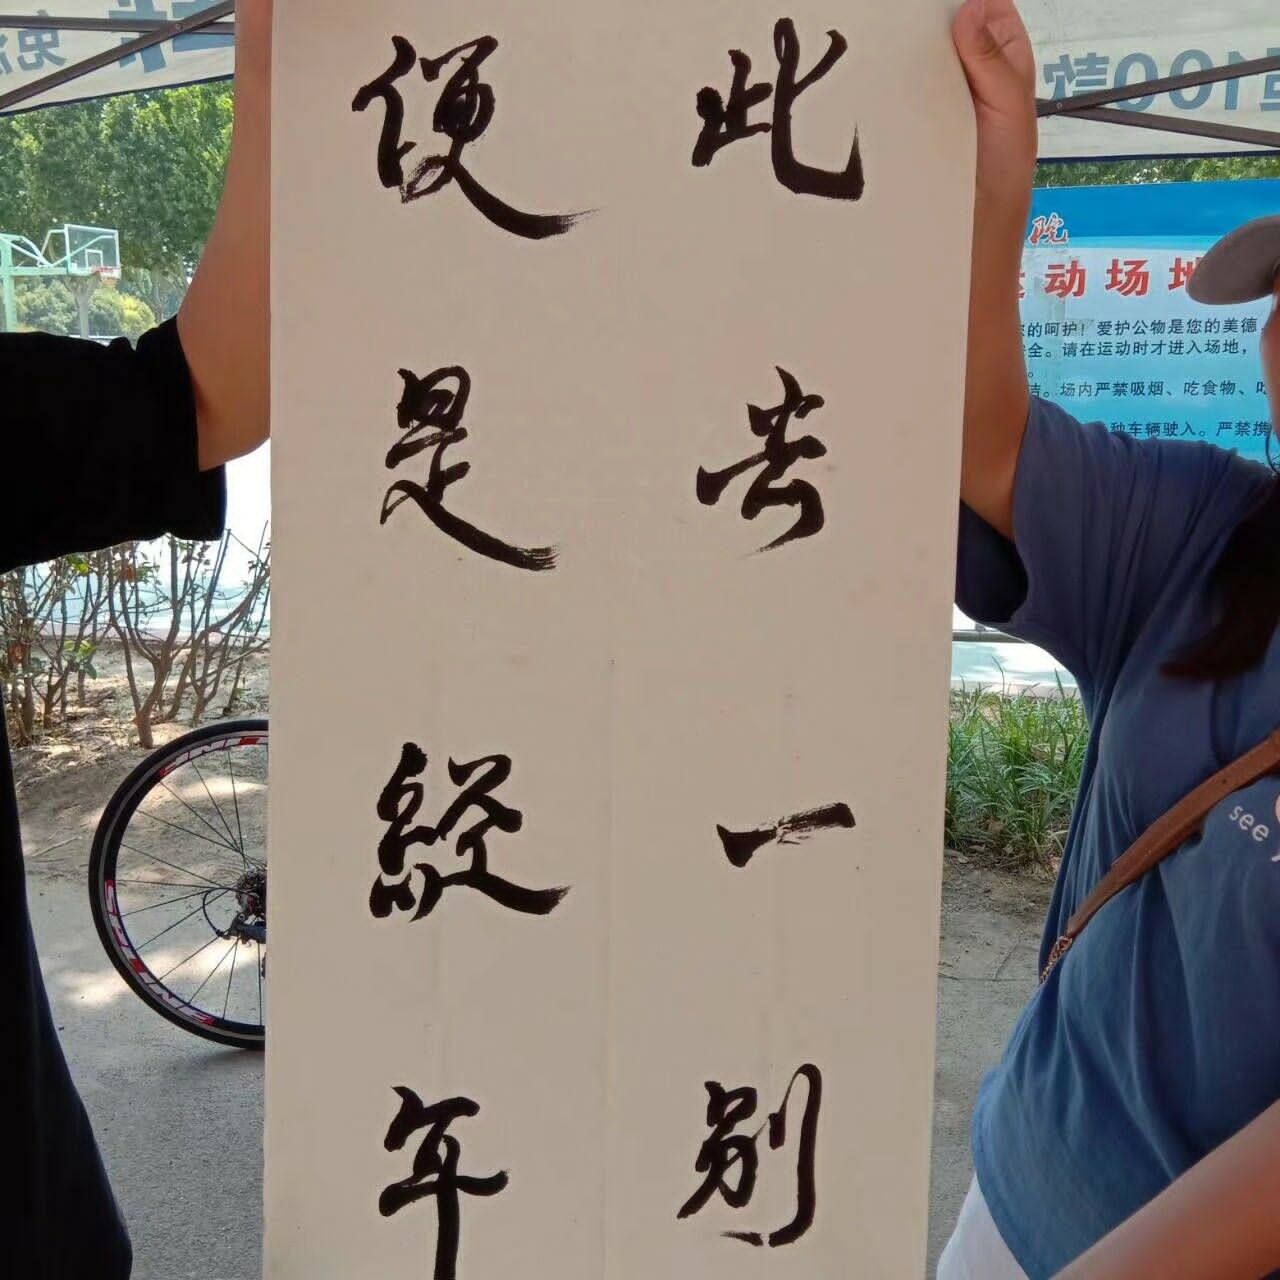 此去一别
便是経年
院
动场地
的呵护！爱护公物是您的美德
全。请在运动时才进入场地，
场内严禁吸烟、吃食物、
种车辆驶入。严禁携
100款
免
see